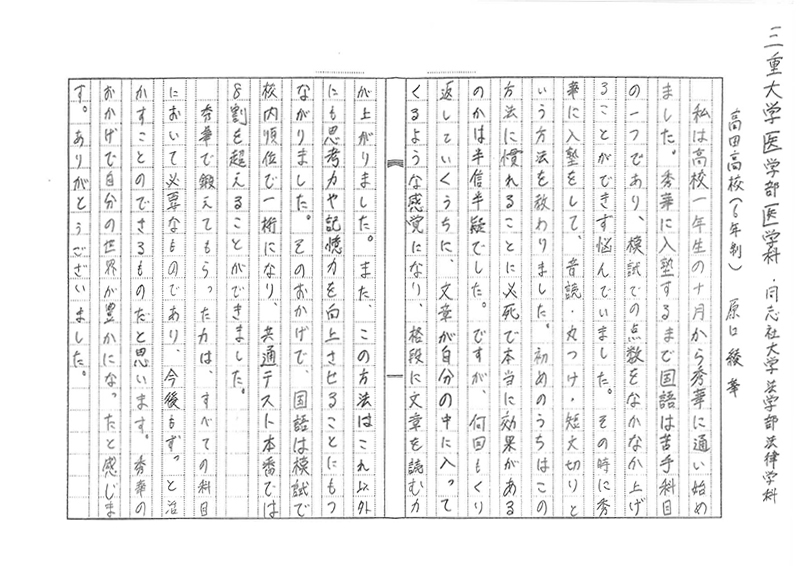 三重大学医学部医学科・同志社大学法学部法律学科
高田高校(6年制) 原口 綾華
私は高校一年生の十月から秀華に通い始め
ました。秀華に入塾するまで国語は苦手科目
の一つであり、模試での点数をなかなか上げ
ることができず悩んでいました。その時に秀
華に入塾をして、音読・丸つけ・短文切りと
いう方法を教わりました。初めのうちはこの
方法に慣れることに必死で本当に効果がある
のかは半信半疑でした。ですが、何回もくり
返していくうちに、文章が自分の中に入って
くるような感覚になり、格段に文章を読む力
が上がりました。また、この方法はこれ以外
にも思考力や記憶力を向上させることにもつ
ながりました。そのおかげで、国語は模試で
校内順位で一桁になり、共通テスト本番では
8割を超えることができました。
秀華で鍛えてもらった力は、すべての科目
において必要なものであり、今後もずっと活
かすことのできるものだと思います。秀華の
おかげで自分の世界が豊かになったと感じま
す。ありがとうございました。